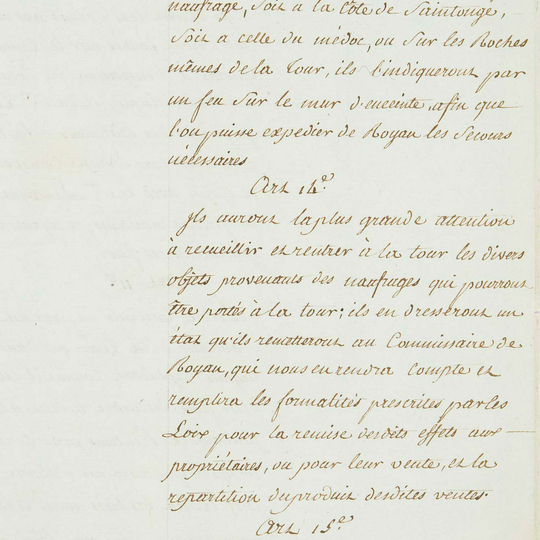 naufrage, soit à la Côte de Saintonge,
soit à celle du médoc, ou sur les Roches
mêmes de la Tour, ils l'indiqueront par
un feu sur le mur d'enceinte, afin que
l'on puisse expédier de Royan les secours
nécessaires
Art 14.e
Ils auront la plus grande attention
à recueillir et rentrer à la tour les divers
objets provenants des naufrages qui pourront
être portés à la tour; ils en dresseront un
état qu'ils remetteront au Commissaire de
Royan, qui nous en rendra compte et
remplira les formalités prescrites par les
Loix pour la remise desdits effets aux
propriétaires, ou pour leur vente, et la
répartition du produit desdites ventes.
Art 15.e